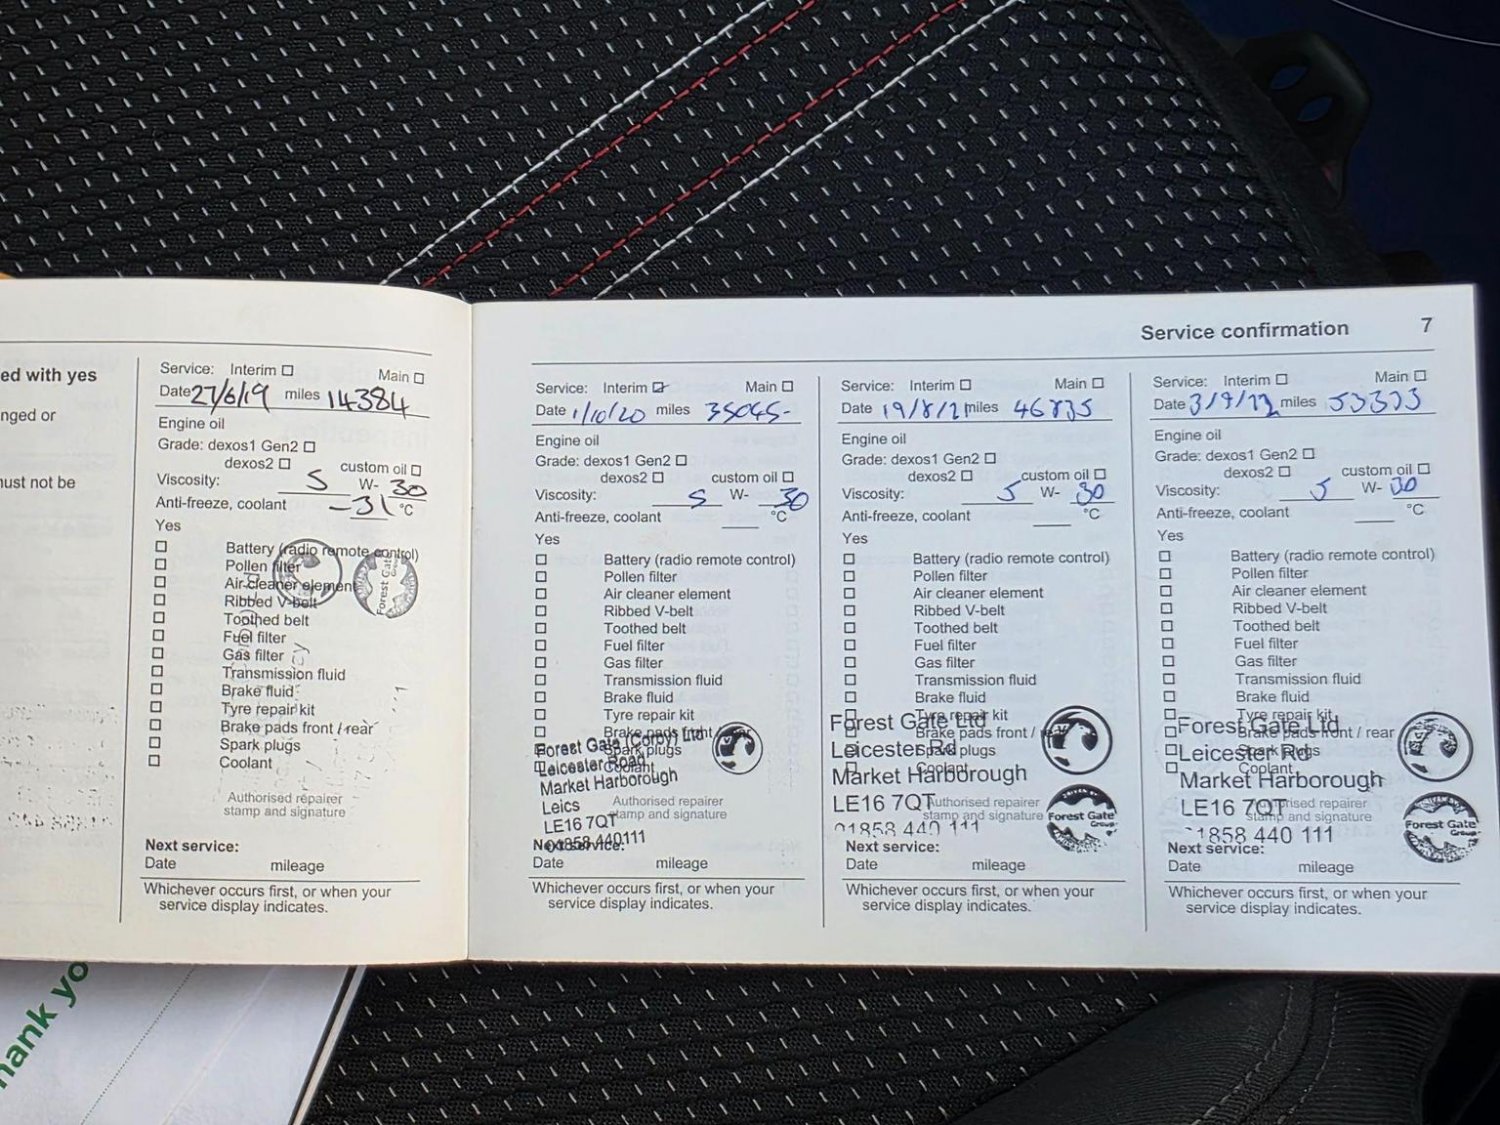 ed with yes
nged or
nust not be
Service: Interim ☐ Main ☐
Date 27/6/19 miles 14384
Engine oil
Grade: dexos1 Gen2 ☐
dexos2 ☐ custom oil ☐
Viscosity: 5 W- 30
Anti-freeze, coolant -31 °C
Yes
☐ Battery (radio remote control)
☐ Pollen filter
☐ Air cleaner element
☐ Ribbed V-belt
☐ Toothed belt
☐ Fuel filter
☐ Gas filter
☐ Transmission fluid
☐ Brake fluid
☐ Tyre repair kit
☐ Brake pads front / rear
☐ Spark plugs
☐ Coolant
Forest Gate
Group
Authorised repairer
stamp and signature
Next service:
Date mileage
Whichever occurs first, or when your
service display indicates.
Service confirmation 7
Service: Interim ☑ Main ☐
Date 1/10/20 miles 35045-
Engine oil
Grade: dexos1 Gen2 ☐
dexos2 ☐ custom oil ☐
Viscosity: 5 W- 30
Anti-freeze, coolant °C
Yes
☐ Battery (radio remote control)
☐ Pollen filter
☐ Air cleaner element
☐ Ribbed V-belt
☐ Toothed belt
☐ Fuel filter
☐ Gas filter
☐ Transmission fluid
☐ Brake fluid
☐ Tyre repair kit
☐ Brake pads front
☐ Spark plugs
☐ Coolant
Forest Gate (Corby) Ltd
Leicester Road
Market Harborough
Leics
LE16 7QT
01858 440111
Authorised repairer
stamp and signature
Next service:
Date mileage
Whichever occurs first, or when your
service display indicates.
Service: Interim ☐ Main ☐
Date 19/8/21 miles 46835
Engine oil
Grade: dexos1 Gen2 ☐
dexos2 ☐ custom oil ☐
Viscosity: 5 W- 30
Anti-freeze, coolant °C
Yes
☐ Battery (radio remote control)
☐ Pollen filter
☐ Air cleaner element
☐ Ribbed V-belt
☐ Toothed belt
☐ Fuel filter
☐ Gas filter
☐ Transmission fluid
☐ Brake fluid
☐ Tyre repair kit
☐ Brake pads front /
☐ Spark plugs
☐ Coolant
Forest Gate Ltd
Leicester Rd
Market Harborough
LE16 7QT
01858 440 111
Forest Gate
Group
Authorised repairer
stamp and signature
Next service:
Date mileage
Whichever occurs first, or when your
service display indicates.
Service: Interim ☐ Main ☐
Date 3/9/22 miles 53353
Engine oil
Grade: dexos1 Gen2 ☐
dexos2 ☐ custom oil ☐
Viscosity: 5 W- 30
Anti-freeze, coolant °C
Yes
☐ Battery (radio remote control)
☐ Pollen filter
☐ Air cleaner element
☐ Ribbed V-belt
☐ Toothed belt
☐ Fuel filter
☐ Gas filter
☐ Transmission fluid
☐ Brake fluid
☐ Tyre repair kit
☐ Brake pads front / rear
☐ Spark plugs
☐ Coolant
Forest Gate Ltd
Leicester Rd
Market Harborough
LE16 7QT
1858 440 111
Forest Gate
Group
Authorised repairer
stamp and signature
Next service:
Date mileage
Whichever occurs first, or when your
service display indicates.
hank yo